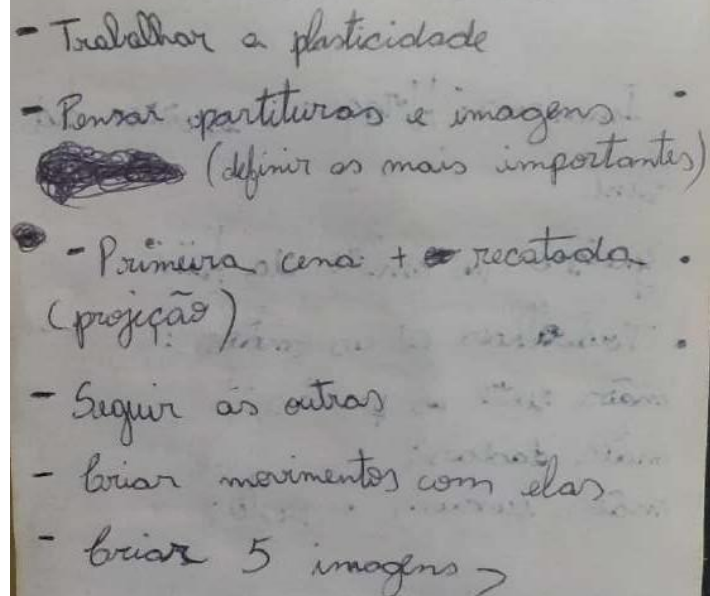 - Trabalhar a plasticidade
- Pensar partituras e imagens.
(definir as mais importantes)
- Primeira cena + recatada.
(projeção)
- Seguir as outras
- Criar movimentos com elas
- Criar 5 imagens